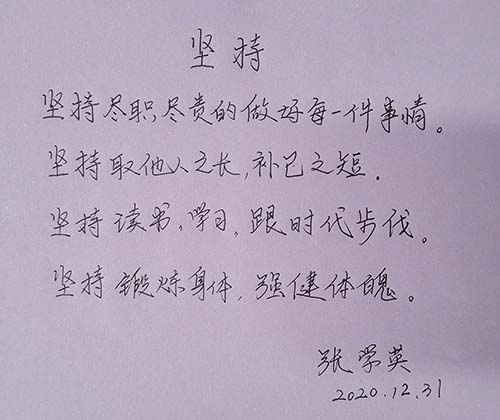 坚持
坚持尽职尽责的做好每一件事情。
坚持取他人之长,补己之短.
坚持读书、学习,跟时代步伐。
坚持锻炼身体,强健体魄。
张学英
2020.12.31